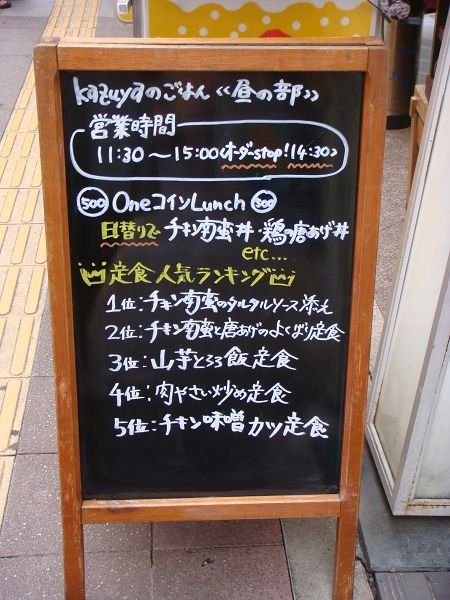 kazuyaのごはん《昼の部》
営業時間
11:30〜15:00<オーダーstop!14:30>
500 OneコインLunch 500
日替りで チキン南蛮丼・鶏の唐あげ丼
etc...
定食人気ランキング
1位:チキン南蛮のタルタルソース添え
2位:チキン南蛮と唐あげのよくばり定食
3位:山芋とろろ飯定食
4位:肉やさい炒め定食
5位:チキン味噌カツ定食